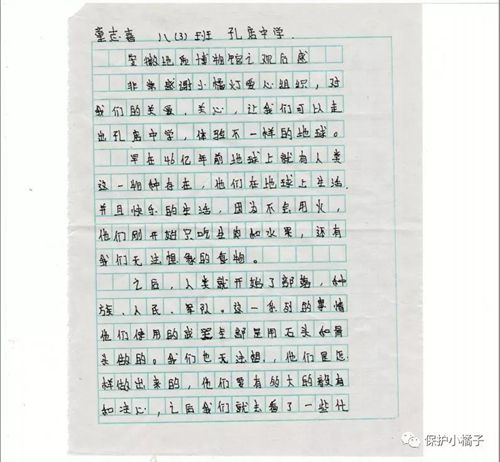 志喜 八(3)班 孔店中学.
安徽地质博物馆之观后感
非常感谢小橘灯爱心组织，对
我们的关爱，关心，让我们可以走
出孔店中学，体验不一样的地球。
早在46亿年前地球上就有人类
这一物种存在，他们在地球上生活，
并且快乐的生活，因为不会用火，
他们刚开始只吃生肉和水果，还有
我们无法想象的食物。
之后，人类就开始了部落，种
族，人民，军队。这一系列的事情
他们使用的武器全部是用石头和骨
头做的。我们也无法想，他们是怎
样做出来的，他们要有多大的毅力
和决心，之后我们就去看了一些化
保护小橘子